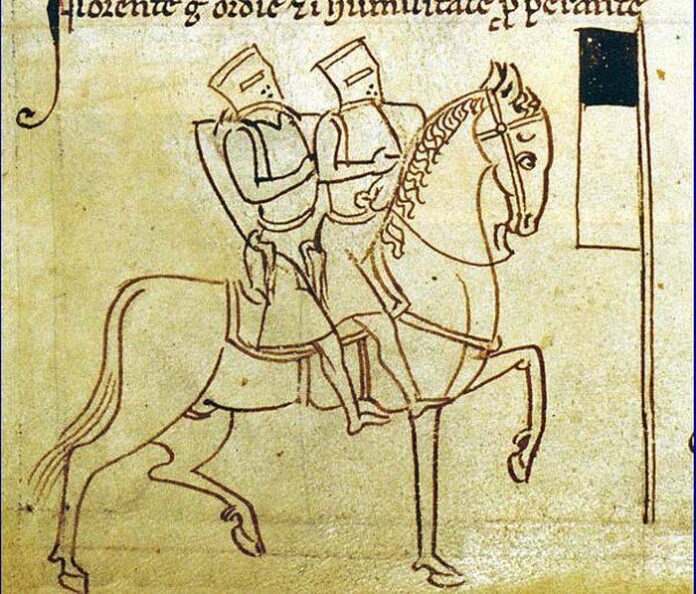 florente g̃ ordīe ⁊ ī humilitate ꝓperante